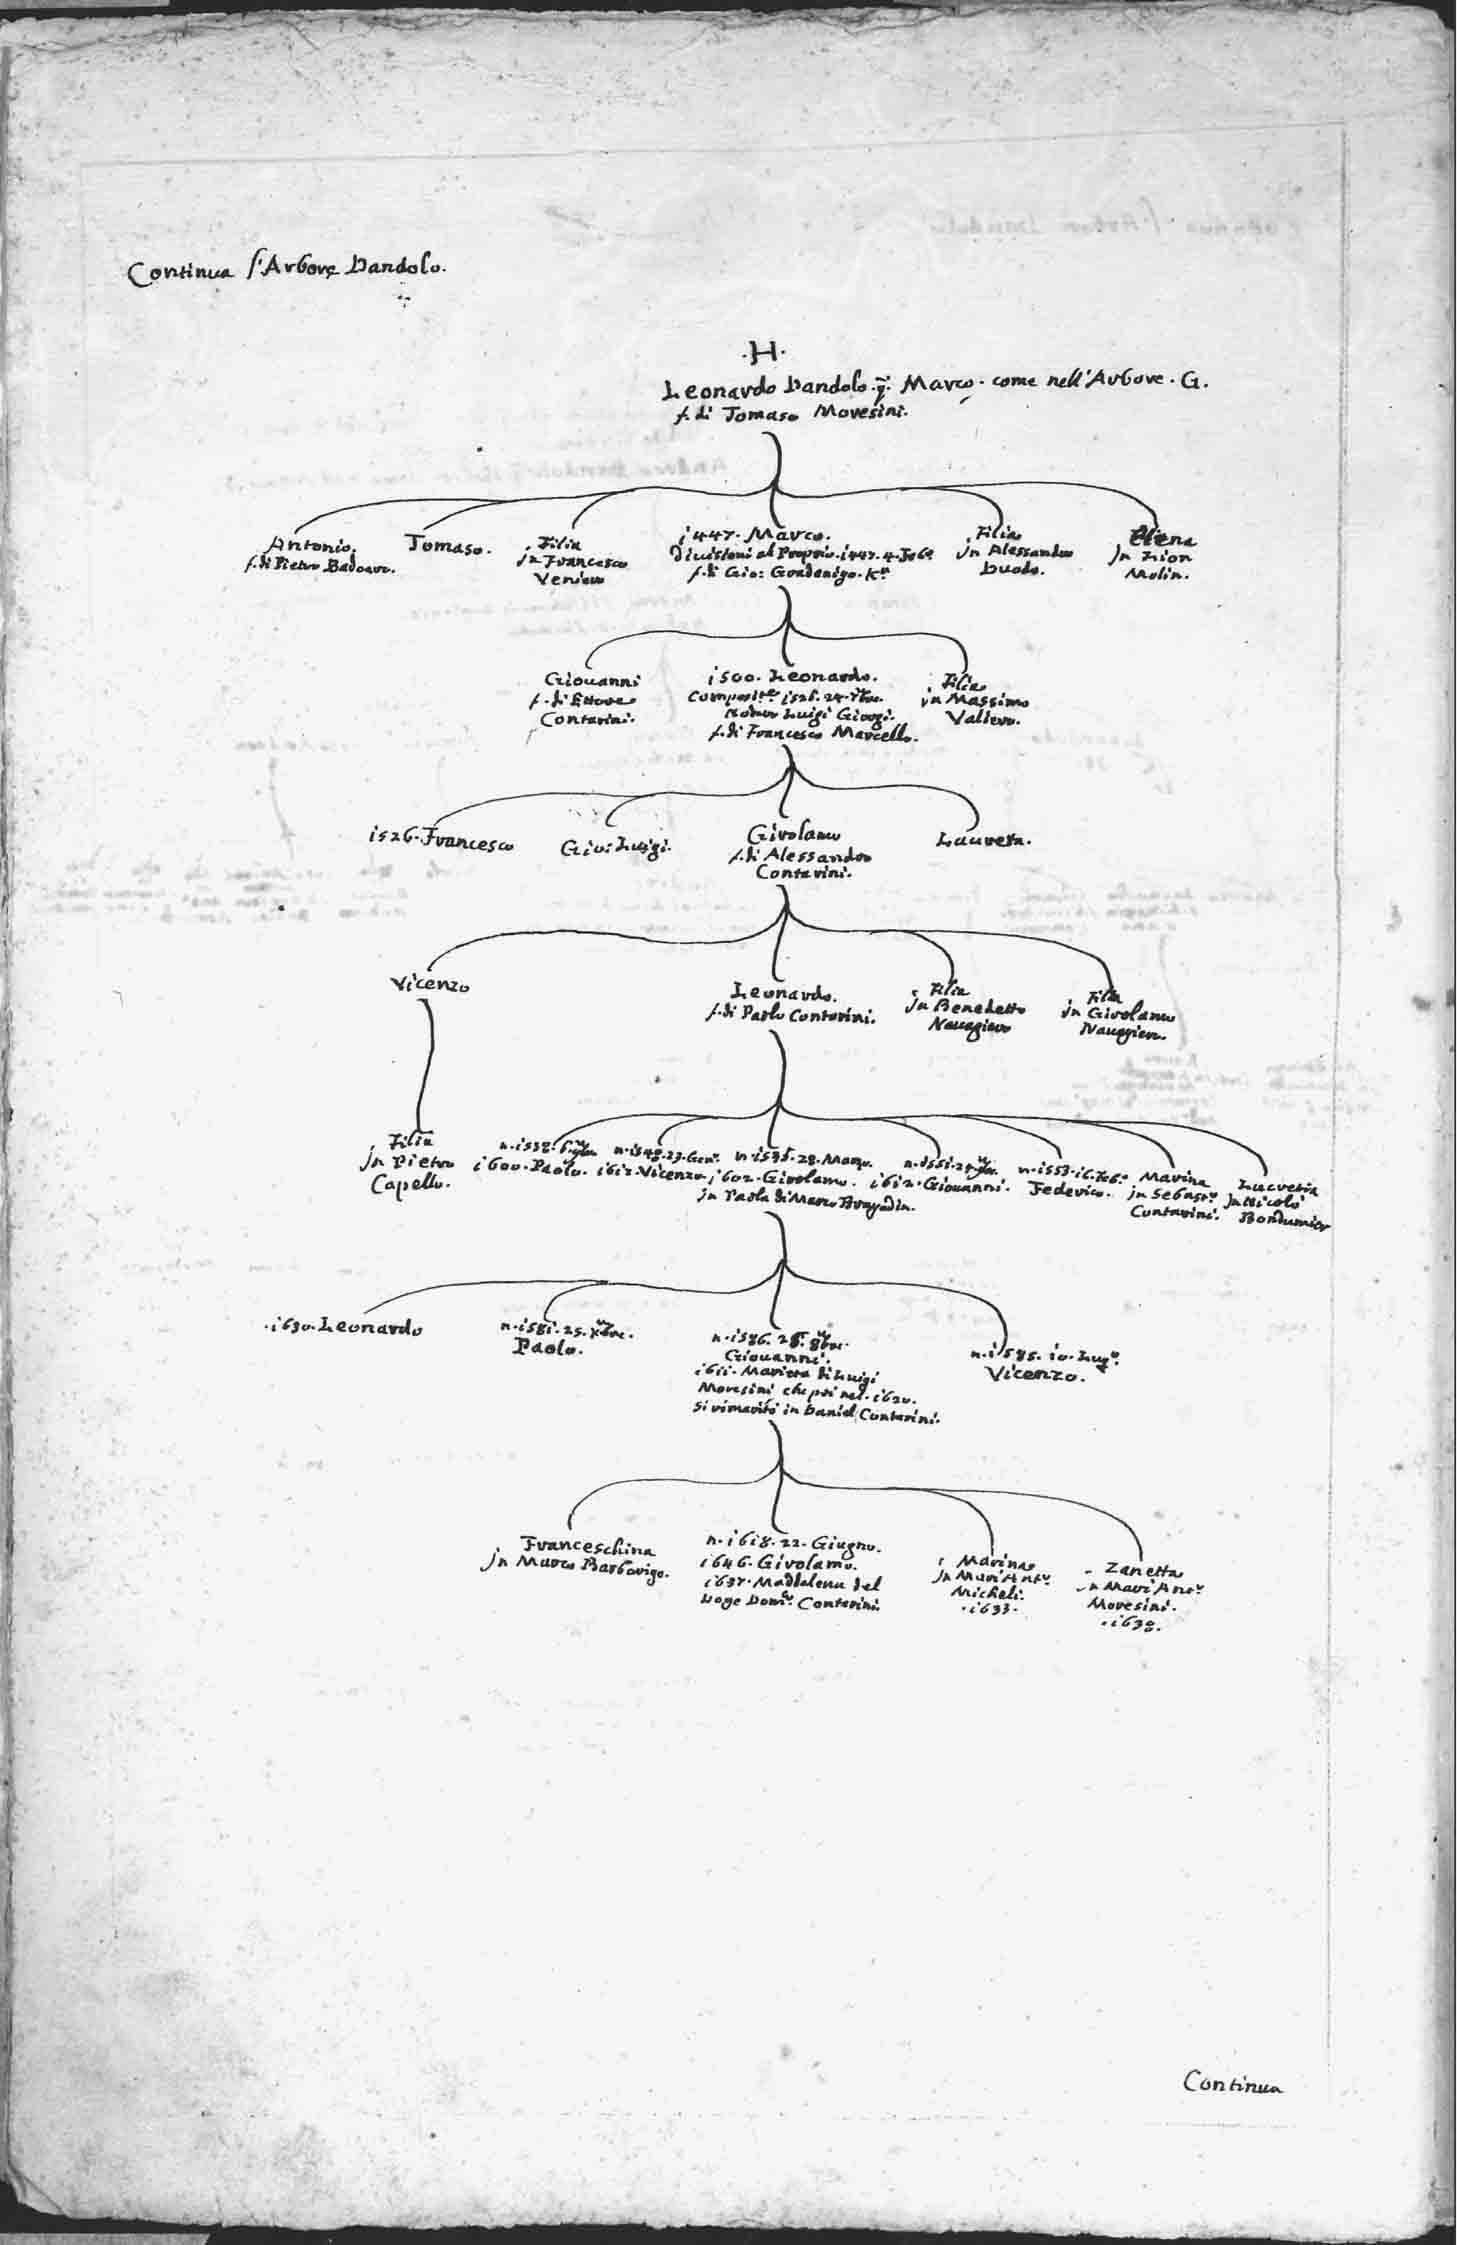 Continua l'Arbore Dandolo.
.H.
Leonardo Dandolo. q. Marco. come nell'Arbore. G.
f. di Tomaso Moresini.
Antonio.
f. di Pietro Badoare.
Tomaso.
Filia
jn Francesco
Venier
i447. Marco.
Divisioni al Proprio. i447. 4.
f. di Gio: Gradenigo. Kr
Filia
jn Alessandro
Duodo.
Elena
jn Lion
Molin.
Giovanni
f. di Ettore
Contarini.
i500. Leonardo.
i526. 24.
Luigi Giorgi.
f. di Francesco Marcello.
Filia
jn Massimo
Vallero.
i526. Francesco
Gio: Luigi.
Girolamo
f. di Alessandro
Contarini.
Laureta.
Vicenzo
Leonardo.
f. di Paolo Contarini.
Filia
jn Benedetto
Navagiero
Filia
jn Girolamo
Navagiero.
Filia
jn Pietro
Capello.
n. i538. 6.
i600. Paolo.
n. 23. Gen.
i612. Vicenzo
n. 28. Marzo.
i602. Girolamo.
jn Paola di Marco Bragadin.
n. i551. 24.
i612. Giovanni.
n. i553. i6.
Federico.
Marina
jn Sebastn
Contarini.
Lucretia
jn Nicolò
Bondumier
.i630. Leonardo
n. i58i. 25. Xbre.
Paolo.
n. i586. 28. 8bre.
Giovanni.
i6ii. Marieta di Luigi
Moresini che poi nel. i620.
si rimaritò in Daniel Contarini.
n. i585. i0. Lugo.
Vicenzo.
Franceschina
jn Marco Barbarigo.
n. i618. 22. Giugno.
i646. Girolamo.
i637. Maddalena del
Doge Domco. Contarini.
Marina
jn Mari'Anto
Micheli.
.i633.
Zanetta
jn Mari'Anto
Moresini.
.i638.
Continua